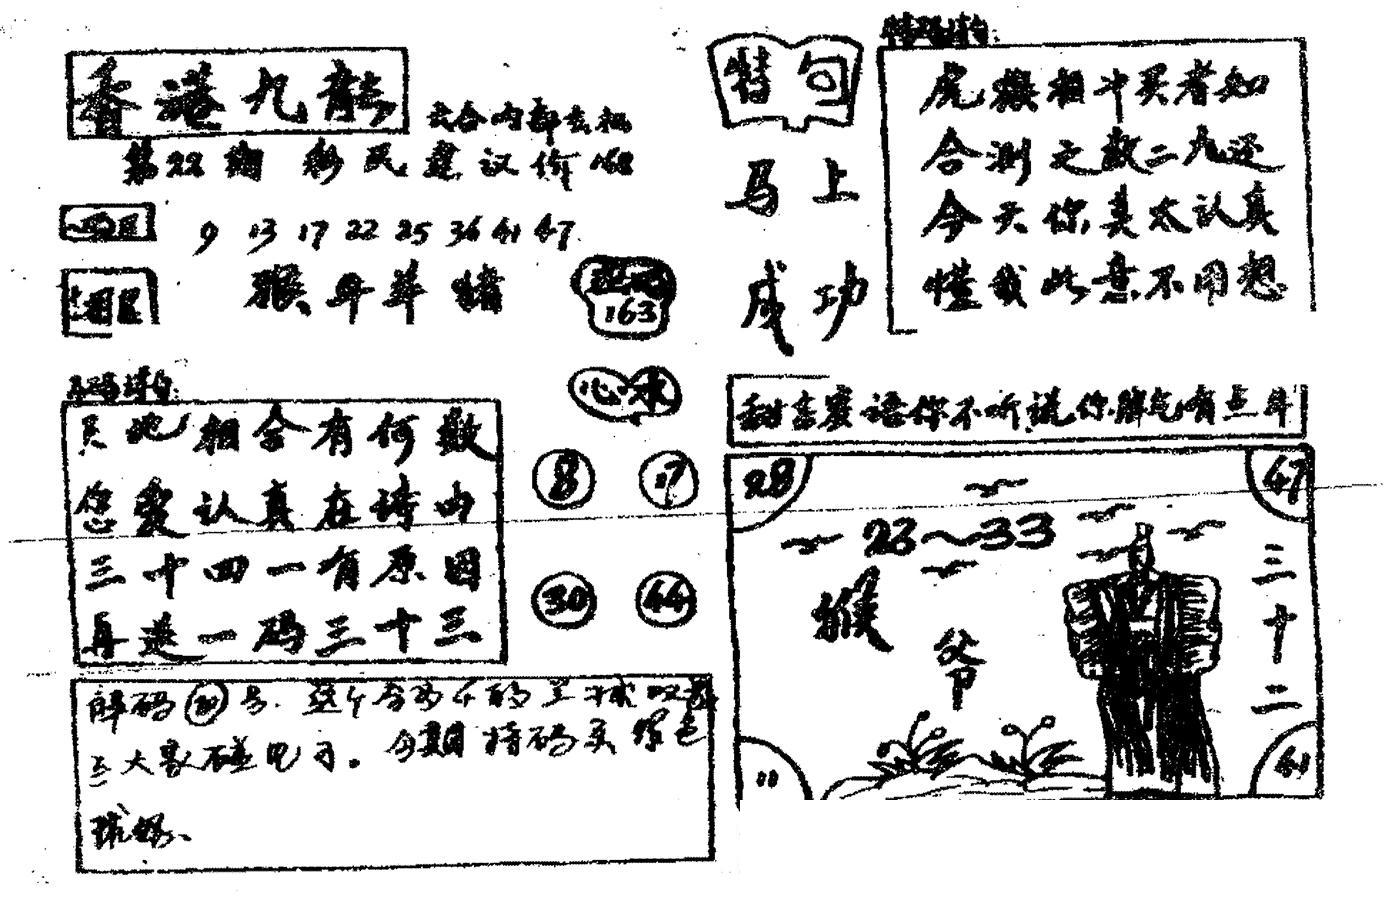 香港九龍
六合内部玄机
第22期 彩民建议价168
四只
9 13 17 22 25 36 41 47
猴牛羊猪
163
心水
8 17
30 44
天地相合有何数
您要认真在诗由
三十四一有原因
再送一码三十三
解码 号
大家
今期特码买绿色
特句
马上
成功
虎猴相斗买者知
合测之数二九还
今天你真太认真
懂我此意不用想
甜言蜜语你不听说你脾气有点牛
28
47
23～33
猴
爷
三十二
11
41